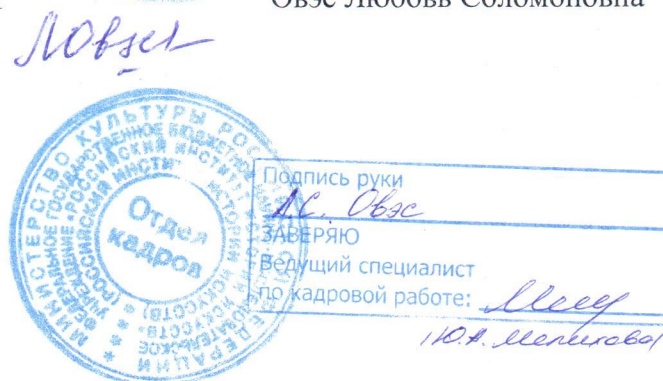 Овэс Любовь Соломоновна
ЛОвэс
МИНИСТЕРСТВО КУЛЬТУРЫ РОССИЙСКОЙ ФЕДЕРАЦИИ
ФЕДЕРАЛЬНОЕ ГОСУДАРСТВЕННОЕ БЮДЖЕТНОЕ
УЧРЕЖДЕНИЕ «РОССИЙСКИЙ ИНСТИТУТ ИСТОРИИ ИСКУССТВ»
Отдел
кадров
Подпись руки
Л.С. Овэс
ЗАВЕРЯЮ
Ведущий специалист
по кадровой работе: